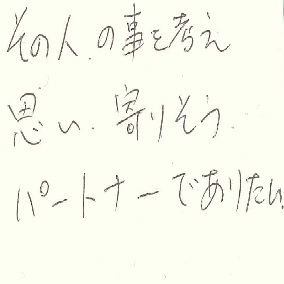 その人の事を考え
思い、寄りそう
パートナーでありたい